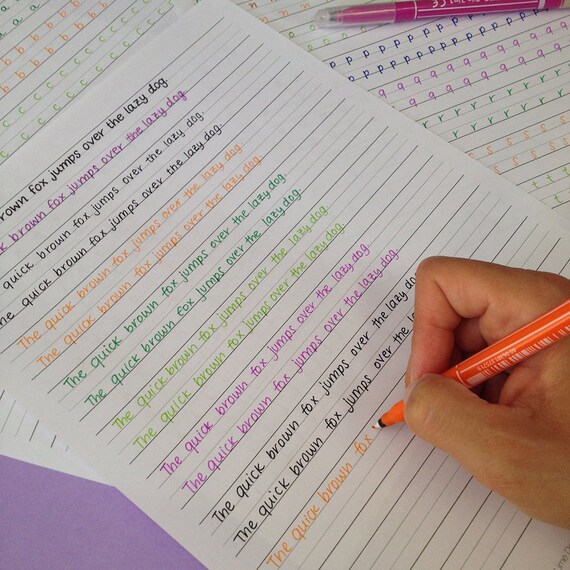 rown fox jumps over the lazy dog
k brown fox jumps over the lazy dog.
quick brown fox jumps over the lazy dog.
he quick brown fox jumps over the lazy dog.
The quick brown fox jumps over the lazy dog.
The quick brown fox jumps over the lazy dog.
The quick brown fox jumps over the lazy dog.
The quick brown fox jumps over the lazy dog.
The quick brown fox jumps over the lazy dog.
The quick brown fox jumps over the lazy dog.
The quick brown fox jumps over the lazy dog.
The quick brown fox jumps over the lazy dog.
The quick brown fox jumps over the lazy do
The quick brown fox jumps over the la
The quick brown fox